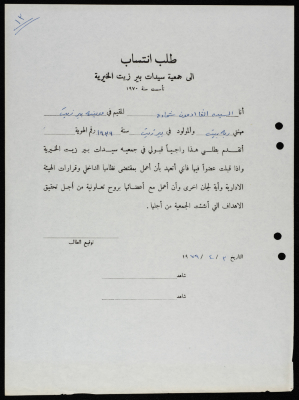 ١٢
طلب انتساب
الى جمعية سيدات بير زيت الخيرية
تأسست سنة ١٩٧٠
أنا السيدة المقيم في مدينة بير زيت
مهنتي ربة بيت والمولود في بير زيت سنة رقم الهوية
أتقدم بطلبي هذا راجياً قبولي في جمعية سيدات بير زيت الخيرية
واذا قبلت عضواً فيها فانني أتعهد بأن أعمل بمقتضى نظامها الداخلي وقرارات الهيئة
الادارية وأية لجان اخرى وأن أعمل مع أعضائها بروح تعاونية من أجل تحقيق
الاهداف التي أنشئت الجمعية من أجلها .
توقيع الطالب
التاريخ ٢ / ٤ / ١٩٧٦
شاهد
شاهد